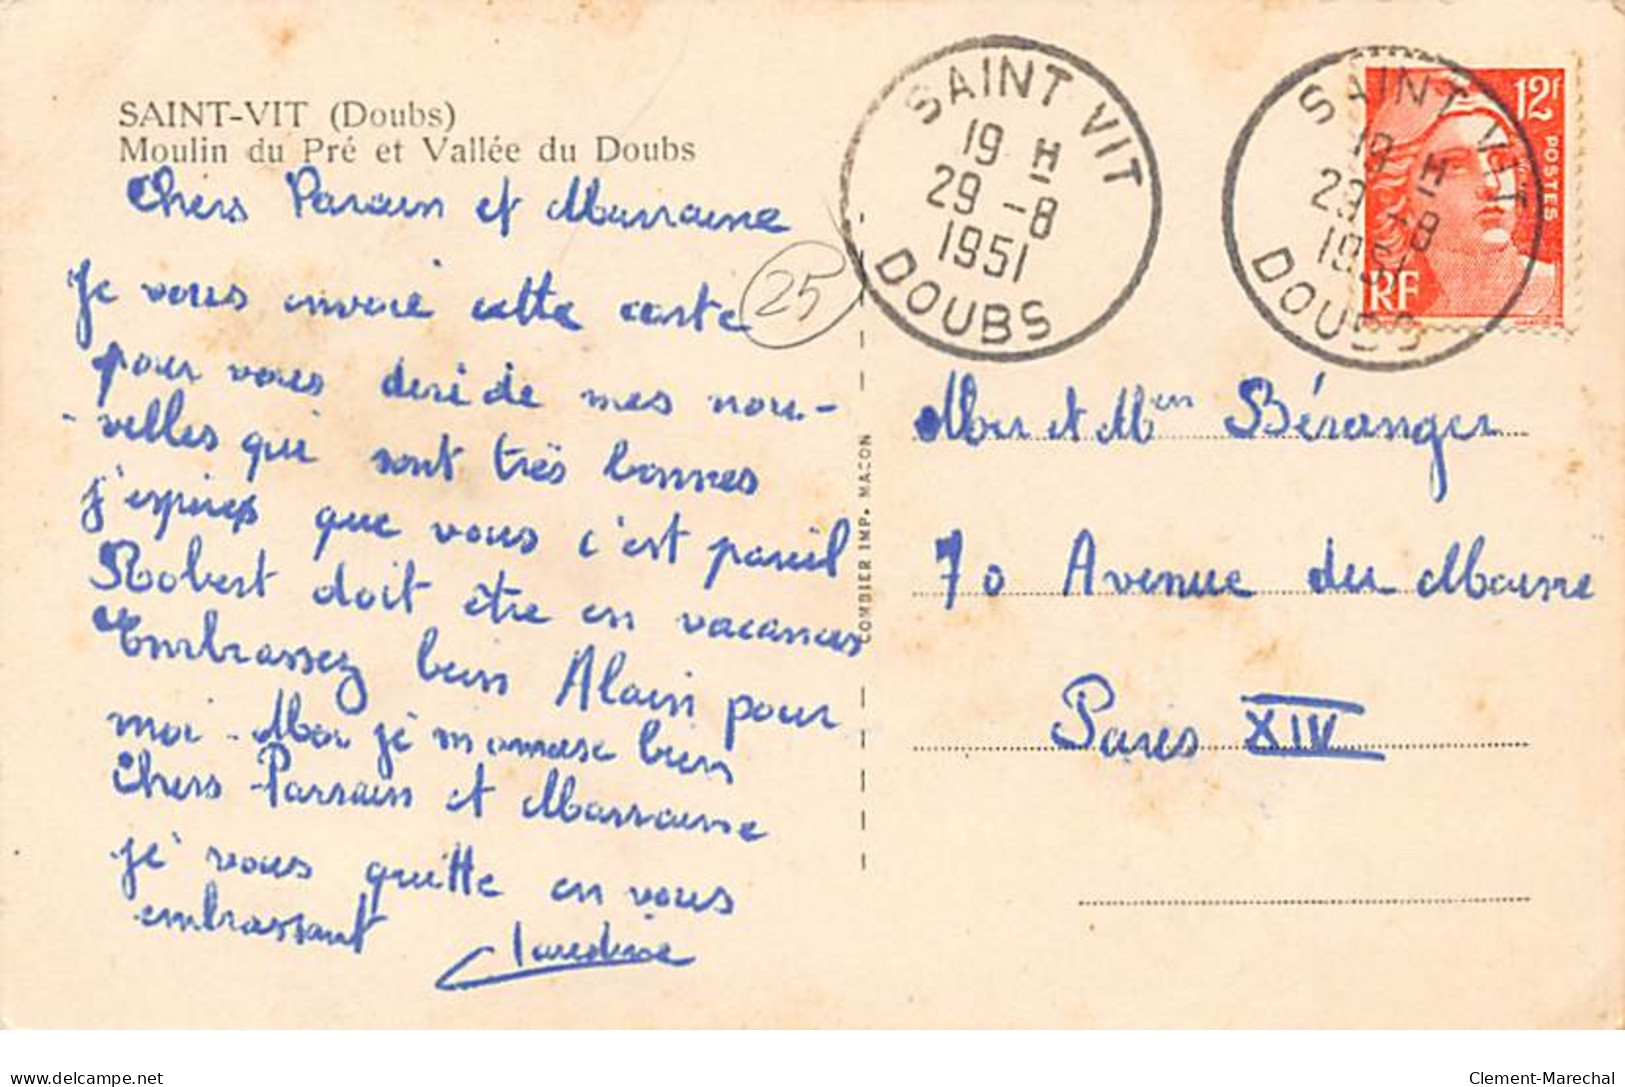 SAINT-VIT (Doubs)
Moulin du Pré et Vallée du Doubs
Chers Parain et Marraine
Je vous envoie cette carte
pour vous de mes nou-
-velles qui sont très bonnes
j'espères que vous c'est pareil
Robert doit être en vacances
Embrassez bien Alain pour
moi. Moi je m'amuse bien
Chers Parrain et Marraine
je vous quitte en vous
embrassant Claudine
25
COMBIER IMP. MACON
SAINT VIT
19 H
29 -8
1951
DOUBS
SAINT VIT
19 H
29 -8
1951
DOUBS
12F
POSTES
RF
Mer et Men Béranger
70 Avenue du Maine
Paris XIV
delcampe.net
Clement-Marechal